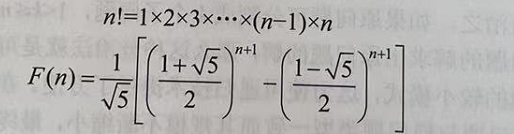 n!=1×2×3×⋯×(n−1)×n
F(n)=\frac{1}{\sqrt{5}}\left[\left(\frac{1+\sqrt{5}}{2}\right)^{n+1}-\left(\frac{1-\sqrt{5}}{2}\right)^{n+1}\right]